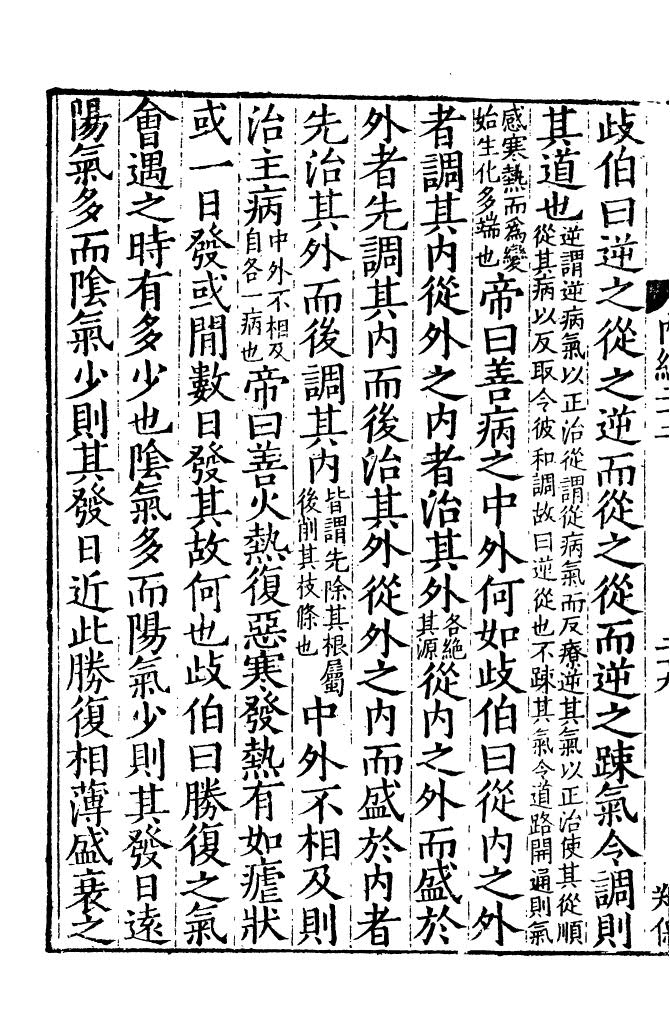 歧伯曰逆之從之逆而從之從而逆之踈氣令調則
其道也逆謂逆病氣以正治從謂從病氣而反療逆其氣以正治使其從順從其病以反取令彼和調故曰逆從也不踈其氣令道路開通則氣
感寒熱而為變始生化多端也帝曰善病之中外何如歧伯曰從內之外
者調其內從外之內者治其外各絕其源從內之外而盛於
外者先調其內而後治其外從外之內而盛於內者
先治其外而後調其內皆謂先除其根屬後削其枝條也中外不相及則
治主病中外不相及自各一病也帝曰善火熱復惡寒發熱有如瘧狀
或一日發或閒數日發其故何也歧伯曰勝復之氣
會遇之時有多少也陰氣多而陽氣少則其發日遠
陽氣多而陰氣少則其發日近此勝復相薄盛衰之